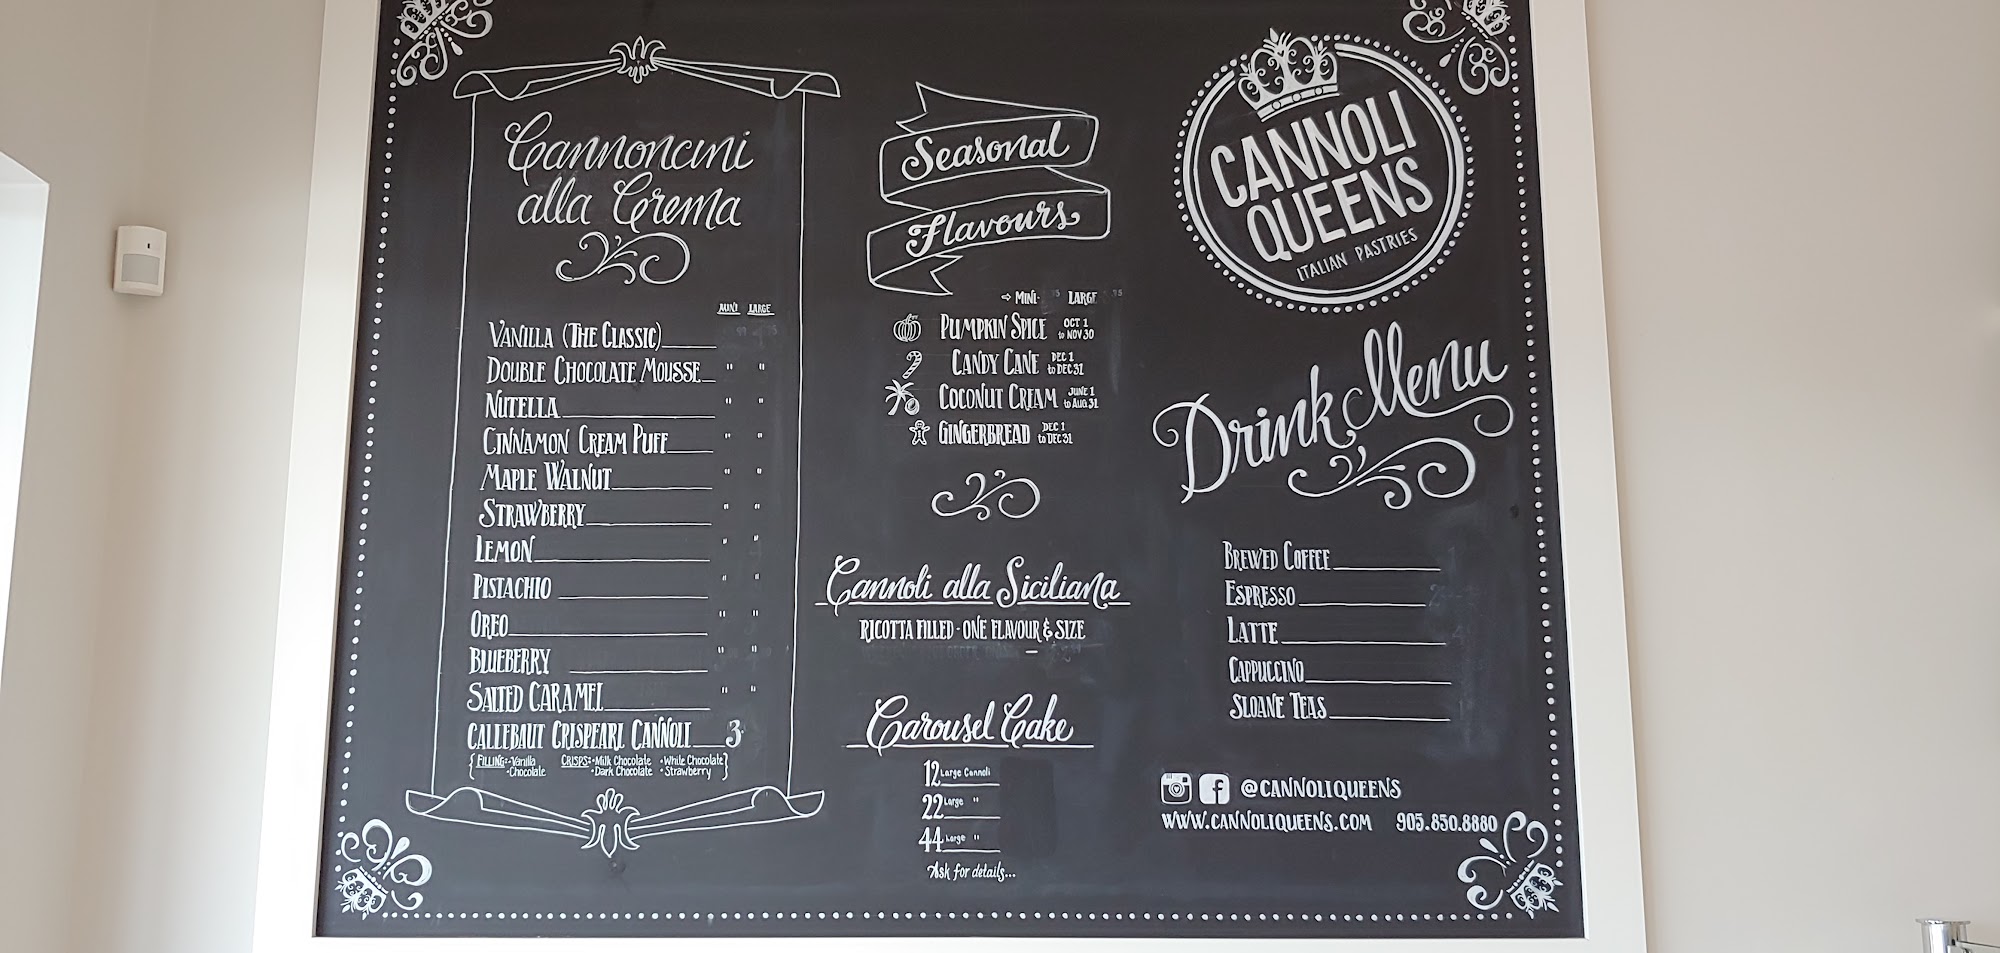 Cannoncini
alla Crema
MINI LARGE
VANILLA (THE CLASSIC)
DOUBLE CHOCOLATE MOUSSE " "
NUTELLA " "
CINNAMON CREAM PUFF " "
MAPLE WALNUT " "
STRAWBERRY " "
LEMON " "
PISTACHIO " "
OREO " "
BLUEBERRY " "
SALTED CARAMEL " "
CALLEBAUT CRISPEARL CANNOLI 3
{FILLING:•Vanilla CRISPS:•Milk Chocolate •White Chocolate}
•Chocolate •Dark Chocolate •Strawberry
Seasonal
Flavours
⇨ MINI- LARGE
PUMPKIN SPICE OCT 1 to NOV 30
CANDY CANE DEC 1 to DEC 31
COCONUT CREAM JUNE 1 to AUG 31
GINGERBREAD DEC 1 to DEC 31
Cannoli alla Siciliana
RICOTTA FILLED - ONE FLAVOUR & SIZE
Carousel Cake
12 Large Cannoli
22 Large "
44 Large "
Ask for details...
CANNOLI
QUEENS
ITALIAN PASTRIES
Drink Menu
BREWED COFFEE
ESPRESSO
LATTE
CAPPUCCINO
SLOANE TEAS
@CANNOLIQUEENS
WWW.CANNOLIQUEENS.COM 905.850.8880